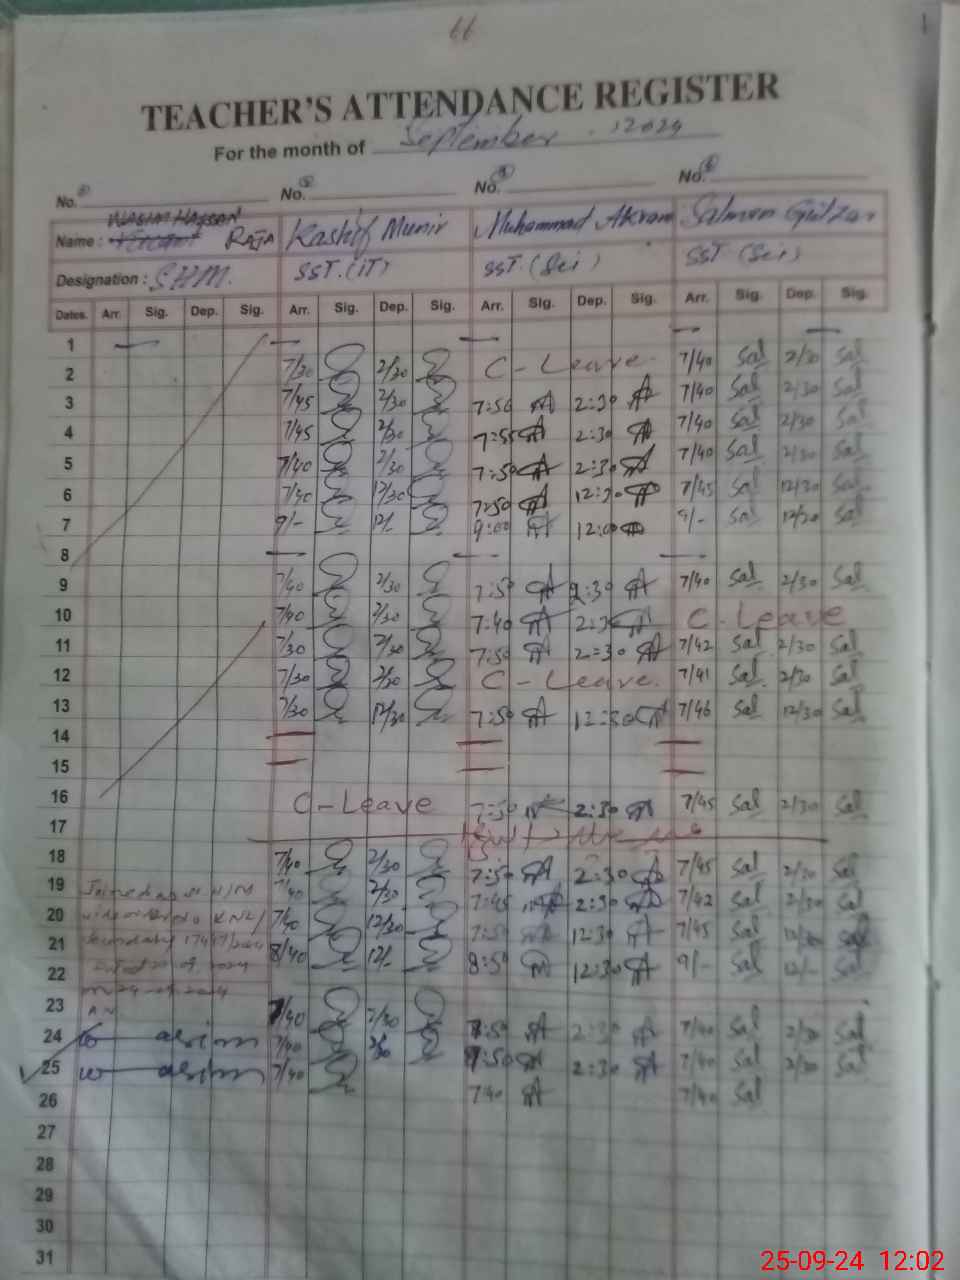 66
TEACHER'S ATTENDANCE REGISTER
For the month of September 2024
No. No. No. No.
Name : WASIM HASSAN RAJA Kashif Munir Muhammad Akram Salmon Gulzar
Designation : SHM. SST.(IT) SST.(Sci) SST.(Sci)
Dates. Arr. Sig. Dep. Sig. Arr. Sig. Dep. Sig. Arr. Sig. Dep. Sig. Arr. Sig. Dep. Sig.
1 — — — — —
2 7/30 2/30 C-Leave. 7/40 Sal 2/30 Sal
3 7/45 2/30 7:50 2:30 7/40 Sal 2/30 Sal
4 7/45 2/30 7:55 2:30 7/40 Sal 2/30 Sal
5 7/40 2/30 7:50 2:30 7/40 Sal 2/30 Sal
6 7/40 12/30 7:50 12:30 7/45 Sal 12/30 Sal
7 9/- 12/- 9:00 12:00 9/- Sal 12/30 Sal
8 — — —
9 7/40 2/30 7:50 2:30 7/40 Sal 2/30 Sal
10 7/40 2/30 7:40 2:30 C-Leave
11 7/30 2/30 7:50 2:30 7/42 Sal 2/30 Sal
12 7/30 2/30 C-Leave. 7/41 Sal 2/30 Sal
13 7/30 12/30 7:50 12:30 7/46 Sal 12/30 Sal
14 — — —
15 — — —
16 C-Leave 7:50 2:30 7/45 Sal 2/30 Sal
17
18 7/40 2/30 7:50 2:30 7/45 Sal 2/30 Sal
19 Joined as 7/40 2/30 7:45 2:30 7/42 Sal 2/30 Sal
20 7/40 12/30 7:50 12:30 7/45 Sal 12/30 Sal
21 Secondary 8/40 12/- 8:50 12:30 9/- Sal 12/- Sal
22
23 7/40 2/30 7:50 2:30 7/40 Sal 2/30 Sal
24 7/40 2/30 7:50 2:30 7/40 Sal 2/30 Sal
25 7/40 7:40 7/40 Sal
26
27
28
29
30
31
25-09-24 12:02